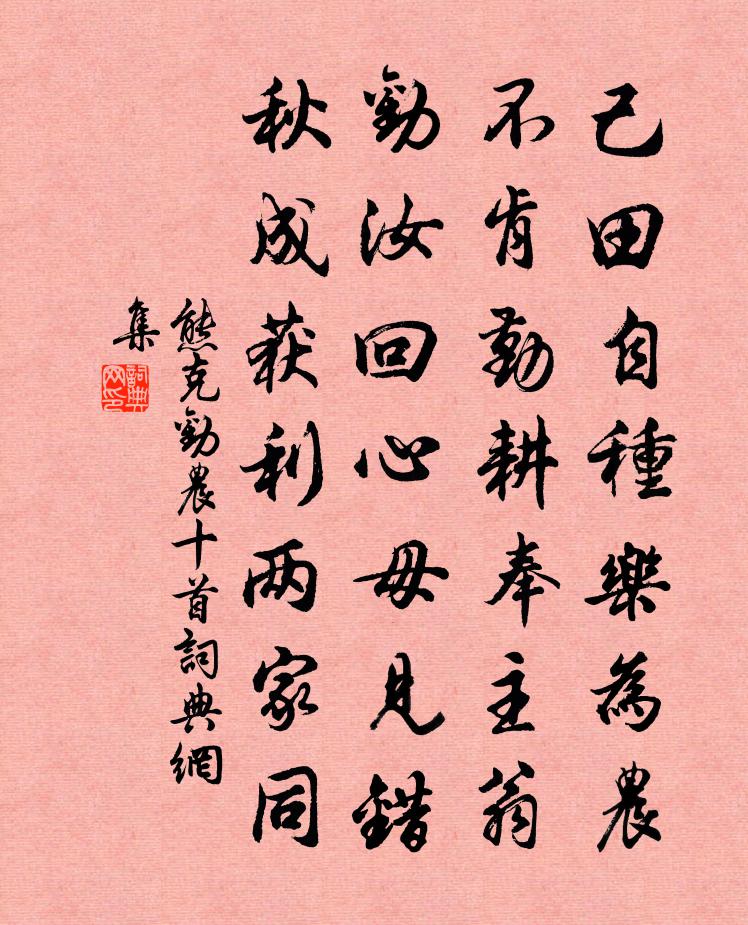 己田自種樂為農
不肯勤耕奉主翁
勸汝回心毋見錯
秋成获利两家同
熊克勸農十首詞典網
集
詞典網印